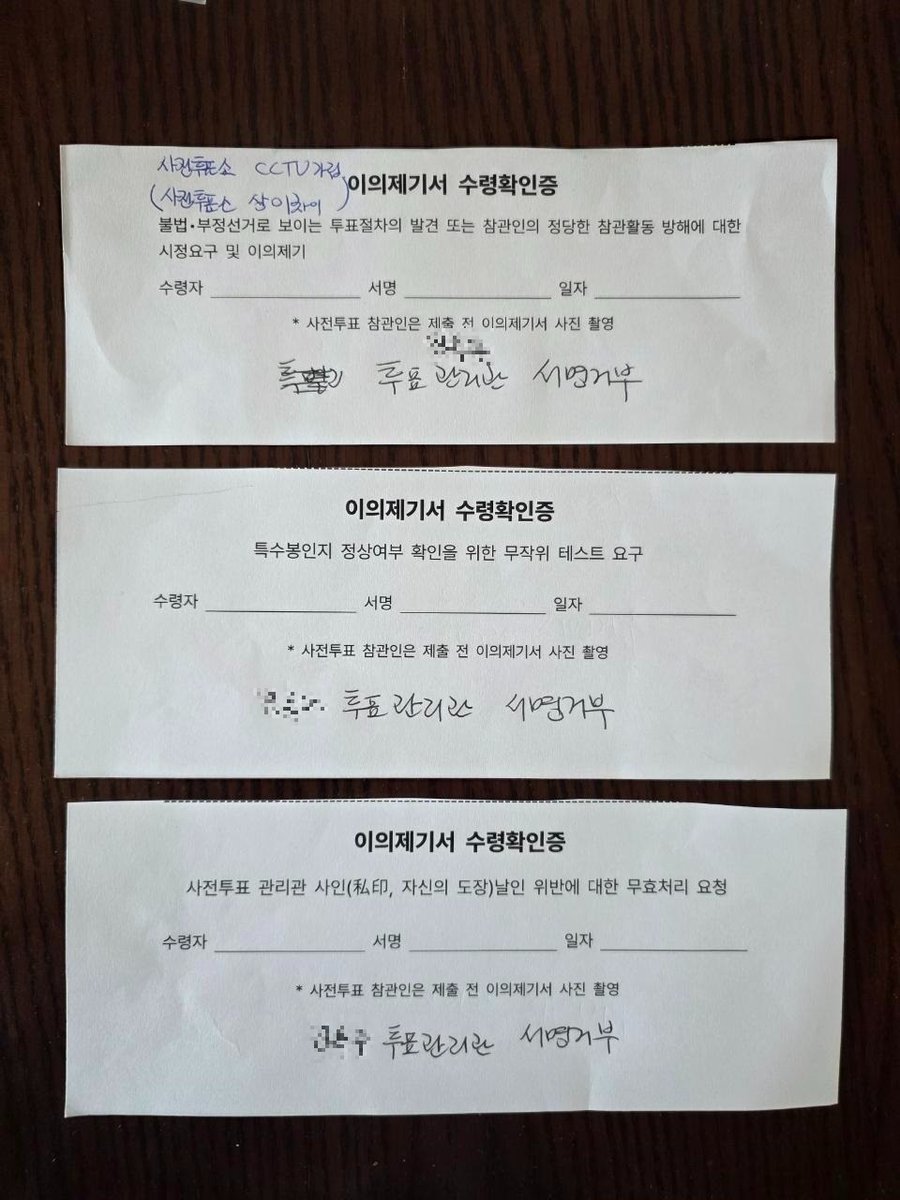 사전투표소 CCTV가림
(사전투표소 상이차이)
이의제기서 수령확인증
불법·부정선거로 보이는 투표절차의 발견 또는 참관인의 정당한 참관활동 방해에 대한
시정요구 및 이의제기
수령자 서명 일자
* 사전투표 참관인은 제출 전 이의제기서 사진 촬영
투표관리관 서명거부
이의제기서 수령확인증
특수봉인지 정상여부 확인을 위한 무작위 테스트 요구
수령자 서명 일자
* 사전투표 참관인은 제출 전 이의제기서 사진 촬영
투표관리관 서명거부
이의제기서 수령확인증
사전투표 관리관 사인(私印, 자신의 도장)날인 위반에 대한 무효처리 요청
수령자 서명 일자
* 사전투표 참관인은 제출 전 이의제기서 사진 촬영
투표관리관 서명거부